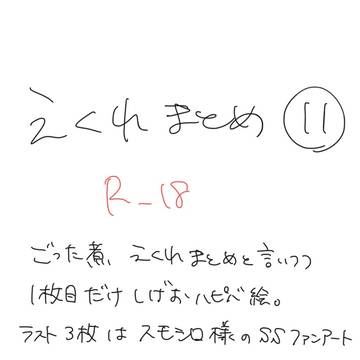 えくれまとめ⑪
R-18
ごった煮、えくれまとめと言いつつ
1枚目だけしげおハピバ絵。
ラスト3枚はスモシロ様のSSファンアート